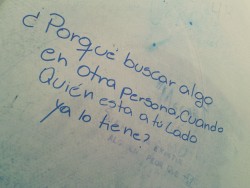 ¿Porqué buscar algo
en otra persona, Cuando
Quién esta a tu lado
ya lo tiene?